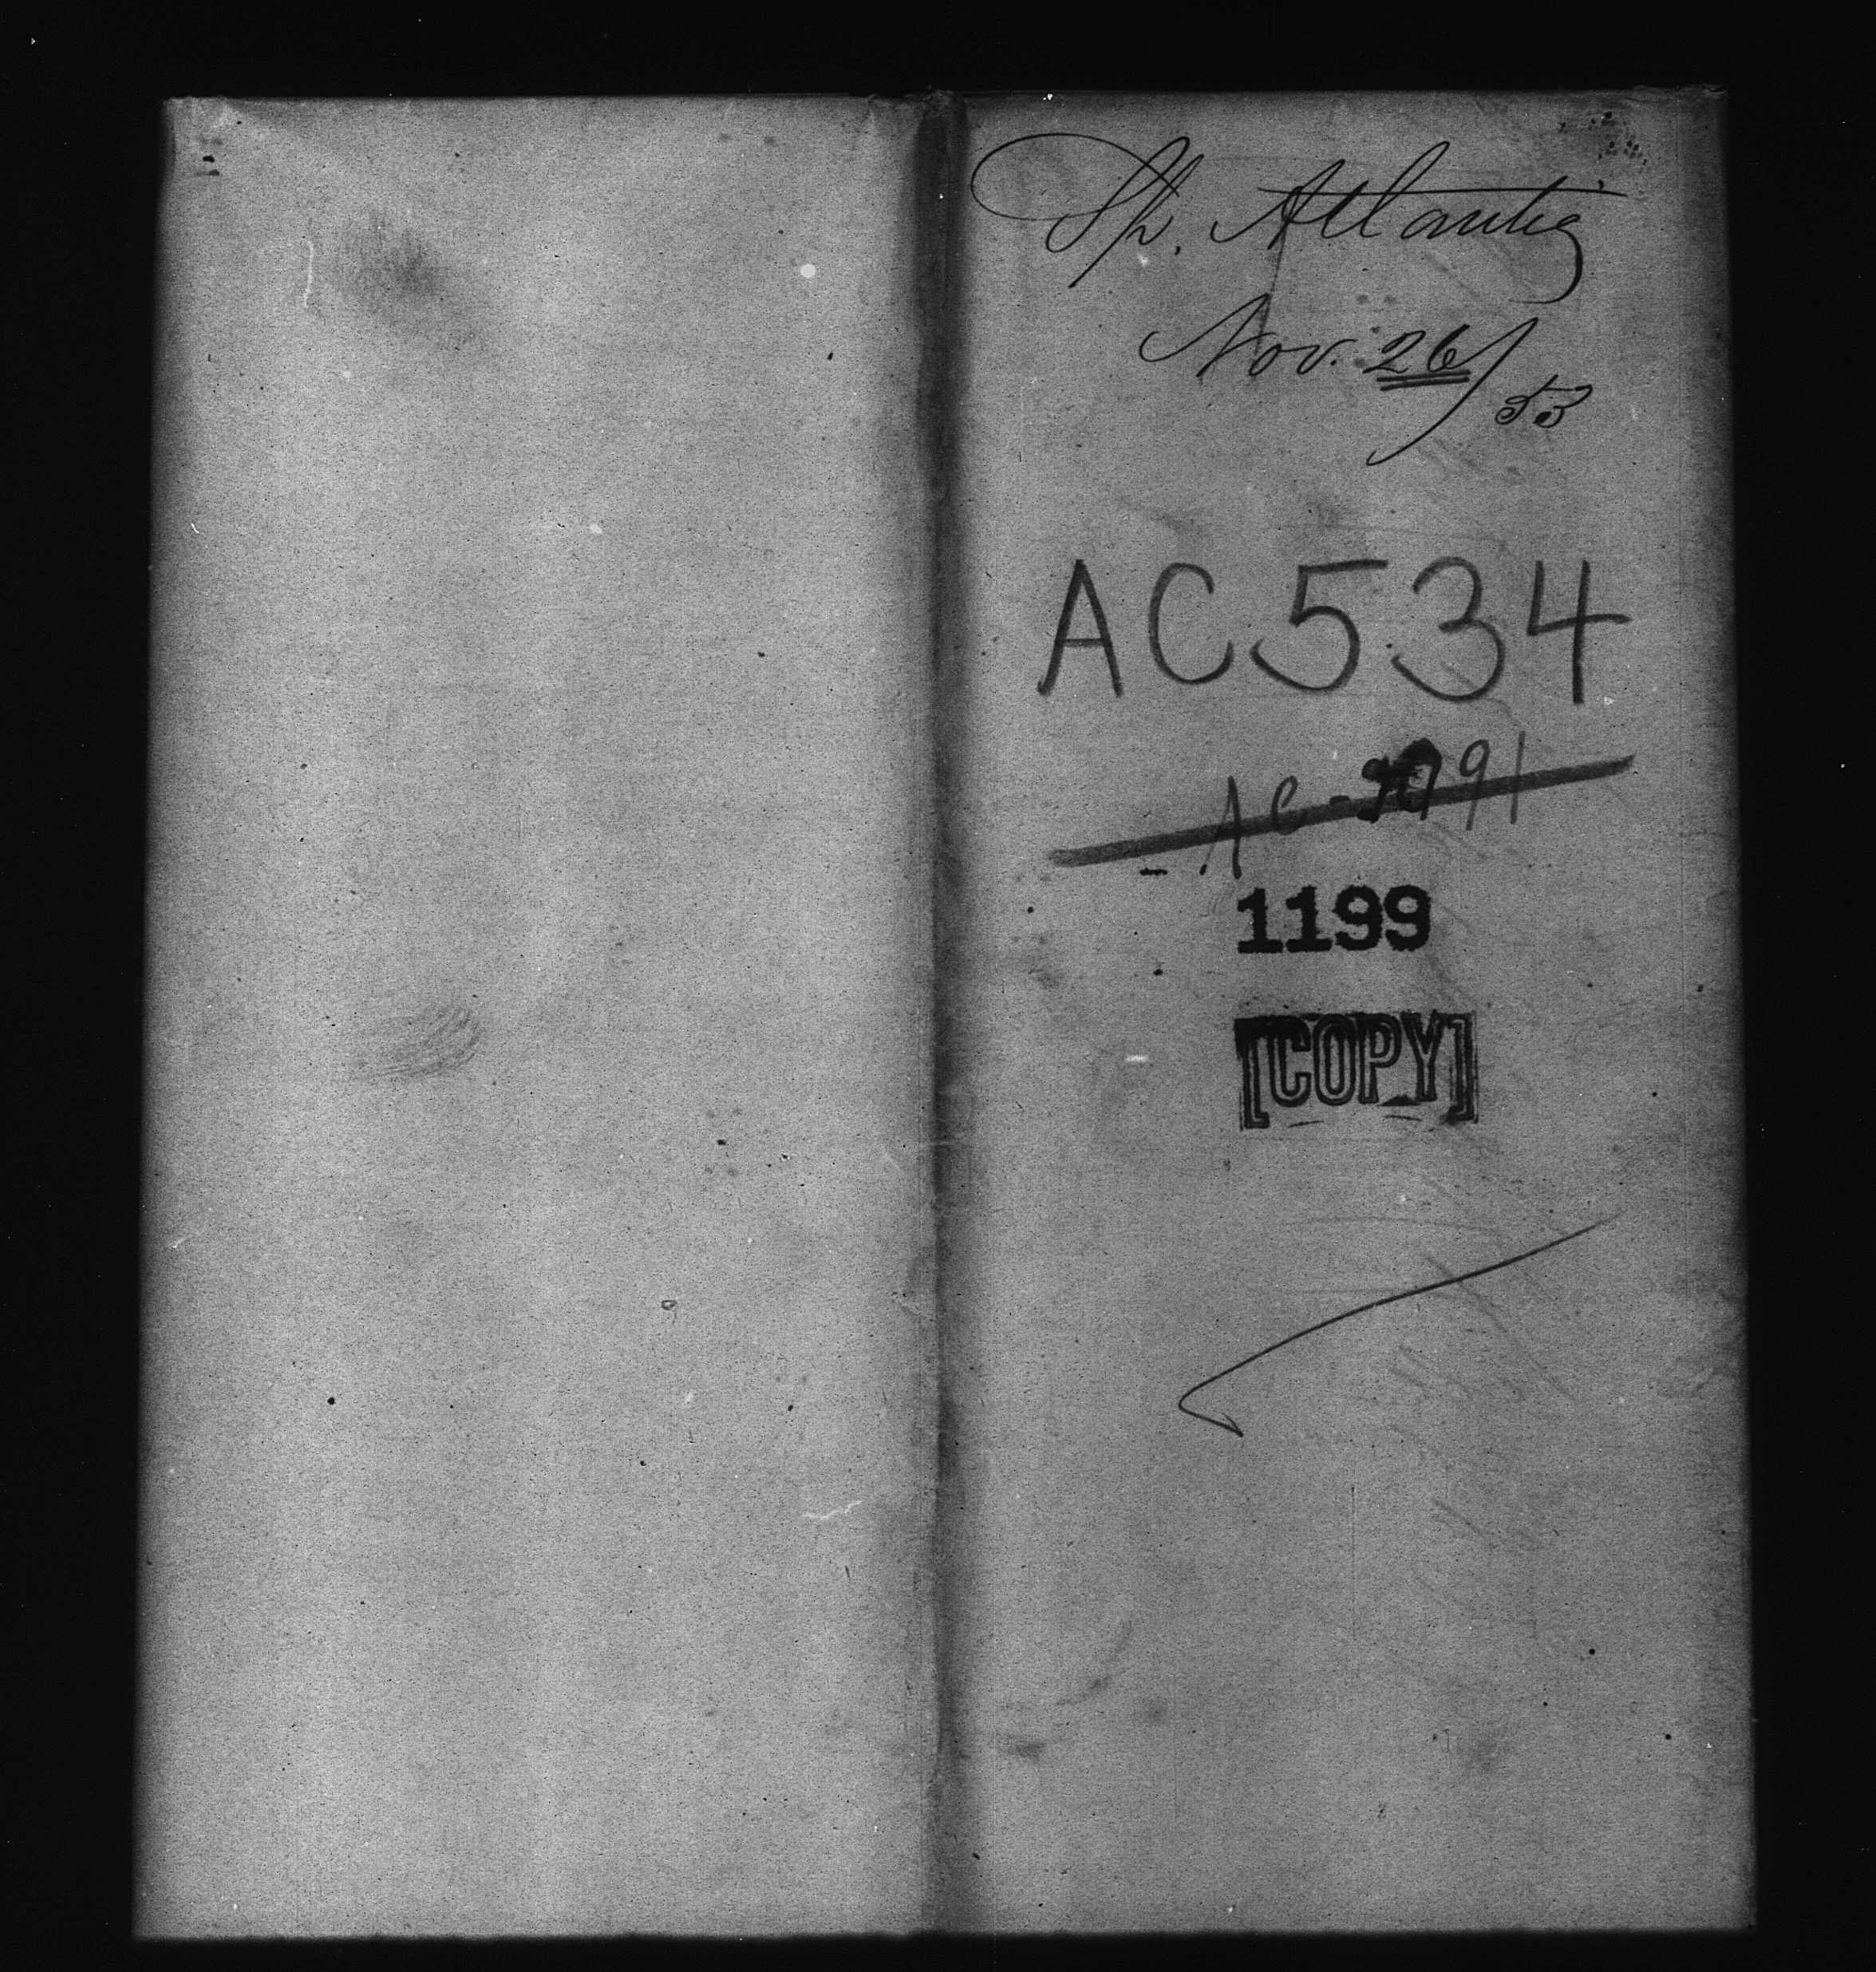 Sh. Atlantic
Nov. 26/53
AC 534
1199
[COPY]